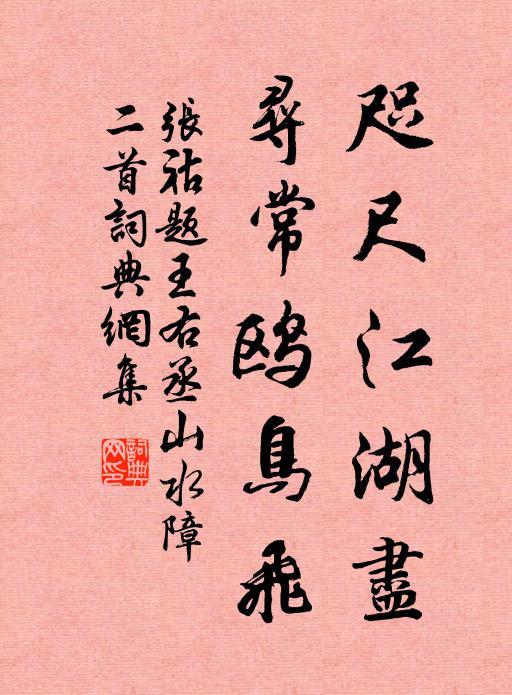 咫尺江湖盡
尋常鷗鳥飛
張祜題王右丞山水障
二首詞典網集
詞典網印